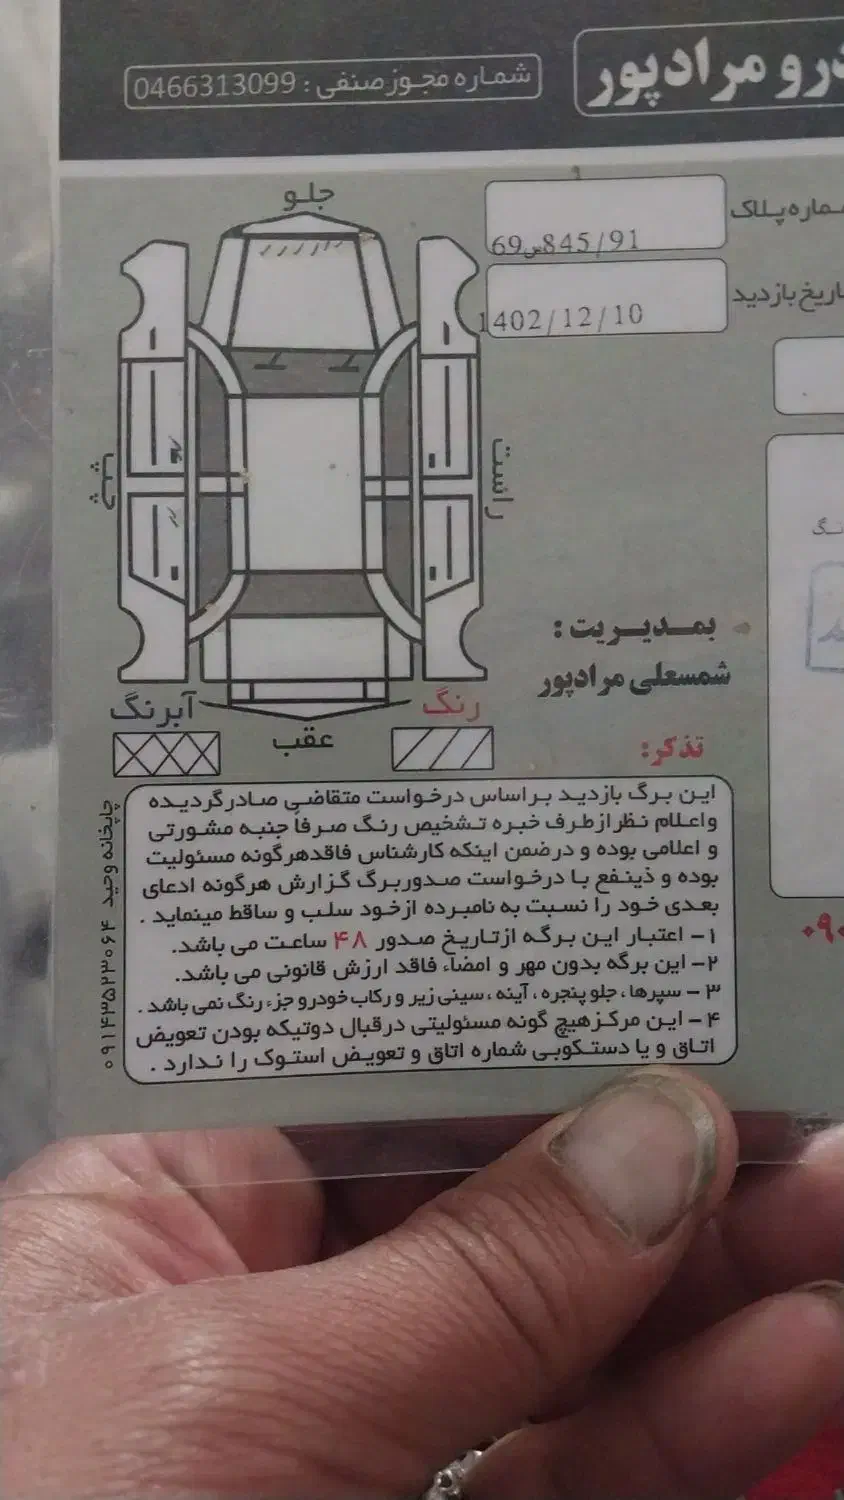 رو مرادپور
شماره مجوز صنفی : 0466313099
شماره پلاک
69س845/91
تاریخ بازدید
1402/12/10
جلو
چپ
راست
بمدیریت :
شمسعلی مرادپور
آبرنگ
رنگ
عقب
تذکر:
این برگ بازدید براساس درخواست متقاضی صادرگردیده
واعلام نظر از طرف خبره تشخیص رنگ صرفاً جنبه مشورتی
و اعلامی بوده و درضمن اینکه کارشناس فاقد هرگونه مسئولیت
بوده و ذینفع با درخواست صدور برگ گزارش هرگونه ادعای
بعدی خود را نسبت به نامبرده از خود سلب و ساقط مینماید .
۱- اعتبار این برگه از تاریخ صدور ۴۸ ساعت می باشد.
۲- این برگه بدون مهر و امضاء فاقد ارزش قانونی می باشد.
۳- سپرها ، جلو پنجره ، آینه ، سینی زیر و رکاب خودرو جزء رنگ نمی باشد .
۴- این مرکز هیچ گونه مسئولیتی در قبال دوتیکه بودن تعویض
اتاق و یا دستکوبی شماره اتاق و تعویض استوک را ندارد .
چاپخانه وحید ۰۹۱۴۳۵۲۳۰۶۴
۰۹۰